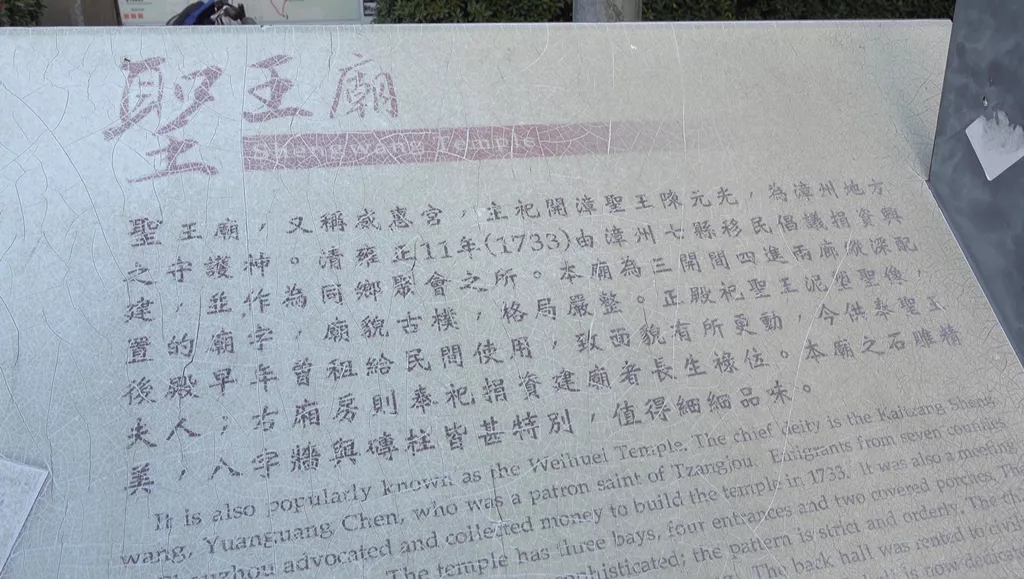 聖王廟
Shengwang Temple
聖王廟，又稱威惠宮，主祀開漳聖王陳元光，為漳州地方
之守護神。清雍正11年(1733)由漳州七縣移民倡議捐資興
建，並作為同鄉聚會之所。本廟為三開間四進兩廊縱深配
置的廟宇，廟貌古樸，格局嚴整。正殿祀聖王泥塑聖像，
後殿早年曾租給民間使用，致面貌有所更動，今供奉聖王
夫人；右廂房則奉祀捐資建廟者長生祿位。本廟之石雕精
美，八字牆與磚柱皆甚特別，值得細細品味。
It is also popularly known as the Weihuei Temple. The chief deity is the Kaitzang Sheng
wang, Yuanguang Chen, who was a patron saint of Tzangjou. Emigrants from seven counties
advocated and collected money to build the temple in 1733. It was also a meeting
The temple has three bays, four entrances and two covered porches. The
sophisticated; the pattern is strict and orderly. The
The back hall was rented to
is now